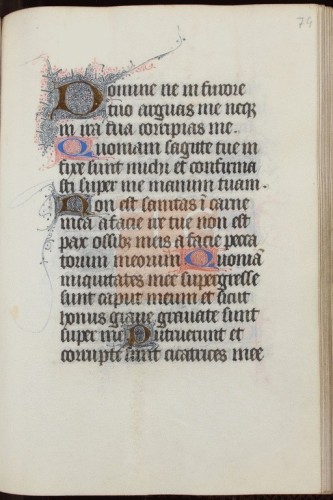 74
Domine ne in furore
tuo arguas me neqz
in ira tua corripias me.
Quoniam sagitte tue in
fixe sunt michi et confirma
sti super me manum tuam.
Non est sanitas ī carne
mea a facie ire tue non est
pax ossibꝫ meis a facie pecca
torum meorum Quoniā
iniquitates mee supergresse
sunt caput meum et sicut
honus graue grauate sunt
super me Putruerunt et
corrupte sunt cicatrices mee